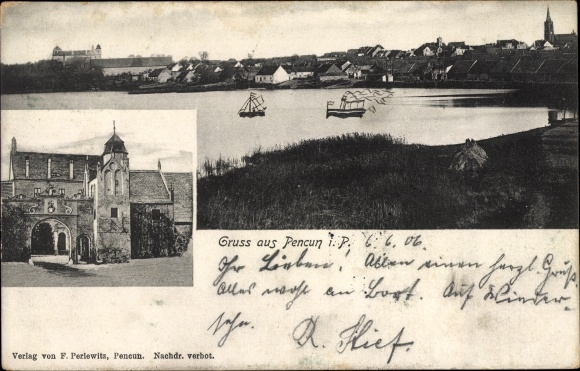 Gruss aus Pencun i. P. 6. 6. 06
Ihr Lieben! Allen einen herzl. Gruß.
Alles wohl an Bort. Auf Wieder-
sehn.
R. Kief.
Verlag von F. Perlewitz, Pencun. Nachdr. verbot.